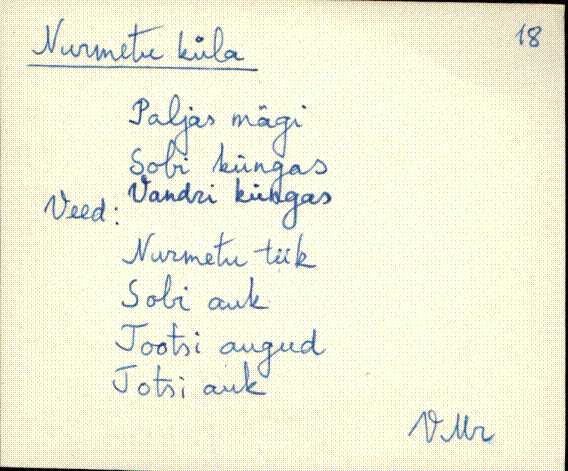 18
Nurmetu küla
Paljas mägi
Sobi küngas
Vandri küngas
Veed:
Nurmetu tiik
Sobi auk
Tootsi augud
Totsi auk
VMr